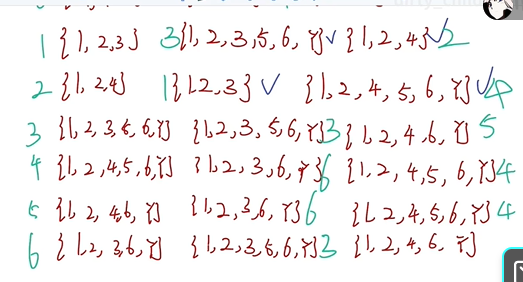 1 {1, 2,3} 3{1, 2, 3, 5, 6, Y}✓ {1, 2, 4}✓2
2 {1, 2,4} 1{1,2,3} ✓ {1, 2, 4, 5, 6, Y}✓4
3 {1, 2, 3, 5, 6,Y} {1, 2, 3, 5, 6, Y}3 {1, 2, 4, 6, Y} 5
4 {1, 2, 4, 5, 6, Y} {1, 2, 3, 6, Y}6 {1, 2, 4, 5, 6, Y}4
5 {1, 2, 4,6, Y} {1, 2, 3, 6, Y}6 {1, 2, 4, 5, 6, Y}4
6 {1, 2, 3,6, Y} {1, 2, 3, 5, 6, Y}3 {1, 2, 4, 6, Y}